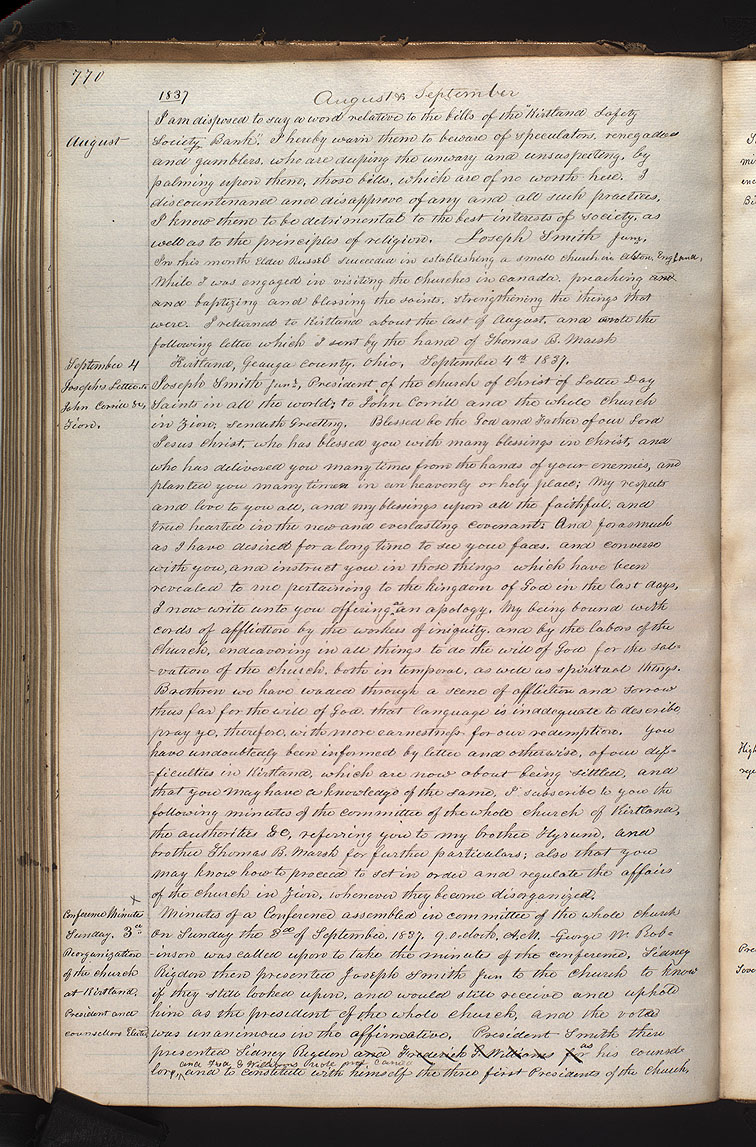 770
1837
August & September
I am disposed to say a word relative to the bills of the "Kirtland Safety
August
Society Bank". I hereby warn them to beware of speculators, renegades
and gamblers, who are duping the unwary and unsuspecting, by
palming upon them, those bills, which are of no worth here. I
discountenance and disapprove of any and all such practices.
I know them to be detrimental to the best interests of society, as
well as to the principles of religion. Joseph Smith Junr.
In this month Elder Russel succeeded in establishing a small church in Alston, England,
While I was engaged in visiting the churches in Canada, preaching and
and baptizing and blessing the saints, strengthening the things that
were. I returned to Kirtland about the last of August, and wrote the
following letter which I sent by the hand of Thomas B. Marsh
September 4
Kirtland, Geauga County, Ohio, September 4th 1837.
Joseph's Letter to
Joseph Smith Junr, President of the Church of Christ of Latter Day
John Corrill &c,
Saints in all the world; to John Corrill and the whole Church
Zion.
in Zion, Sendeth Greeting. Blessed be the God and Father of our Lord
Jesus Christ, who has blessed you with many blessings in Christ, and
who has delivered you many times from the hands of your enemies, and
planted you many times in an heavenly or holy place; My respects
and love to you all, and my blessings upon all the faithful, and
true hearted in the new and everlasting covenant; And forasmuch
as I have desired for a long time to see your faces, and converse
with you, and instruct you in those things which have been
revealed to me pertaining to the kingdom of God in the last days,
I now write unto you offering an apology, My being bound with
cords of affliction by the workers of iniquity, and by the labors of the
Church, endeavoring in all things to do the will of God for the sal-
-vation of the church, both in temporal, as well as spiritual things.
Brethren we have waded through a scene of affliction and sorrow
thus far for the will of God, that language is inadequate to describe
pray ye, therefore, with more earnestness for our redemption. You
have undoubtedly been informed by letter and otherwise, of our dif-
-ficulties in Kirtland, which are now about being settled, and
that you may have a knowledge of the same, I subscribe to you the
following minutes of the committee of the whole church of Kirtland,
the authorities &c, referring you to my brother Hyrum, and
brother Thomas B. Marsh for further particulars; also that you
may know how to proceed to set in order and regulate the affairs
of the church in Zion, whenever they become disorganized.
Conference Minutes
Minutes of a Conference assembled in committee of the whole church
Sunday, 3rd
on Sunday the 3rd of September, 1837, 9 o.clock, A.M. George W. Rob-
Reorganization
-inson was called upon to take the minutes of the conference, Sidney
of the church
Rigdon then presented Joseph Smith Jun to the Church to know
at Kirtland.
if they still looked upon, and would still receive and uphold
President and
him as the president of the whole church, and the vote
counsellors Elected
was unanimous in the affirmative. President Smith then
presented Sidney Rigdon and Frederick G. Williams for as his counsel-
and Fred G Williams
lors, and to constitute with himself the three first Presidents of the Church,